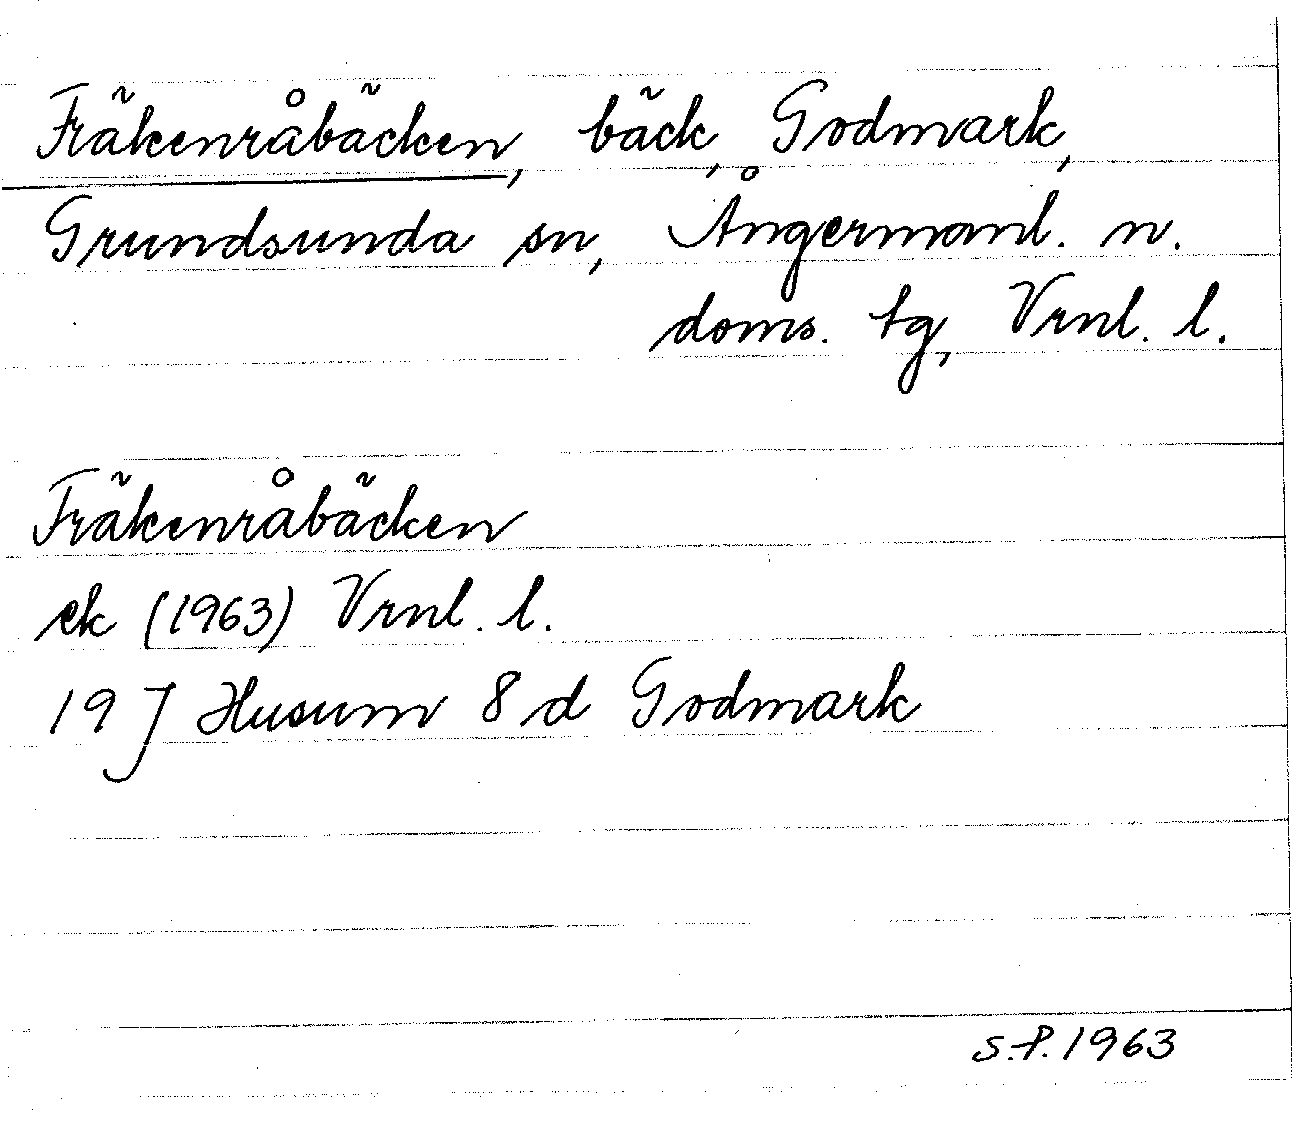 Fräkenråbäcken, bäck, Godmark,
Grundsunda sn, Ångermanl. n.
doms. tg, Vrnl. l.
Fräkenråbäcken
ek (1963) Vrnl. l.
19 J Husum 8 d Godmark
S.P. 1963